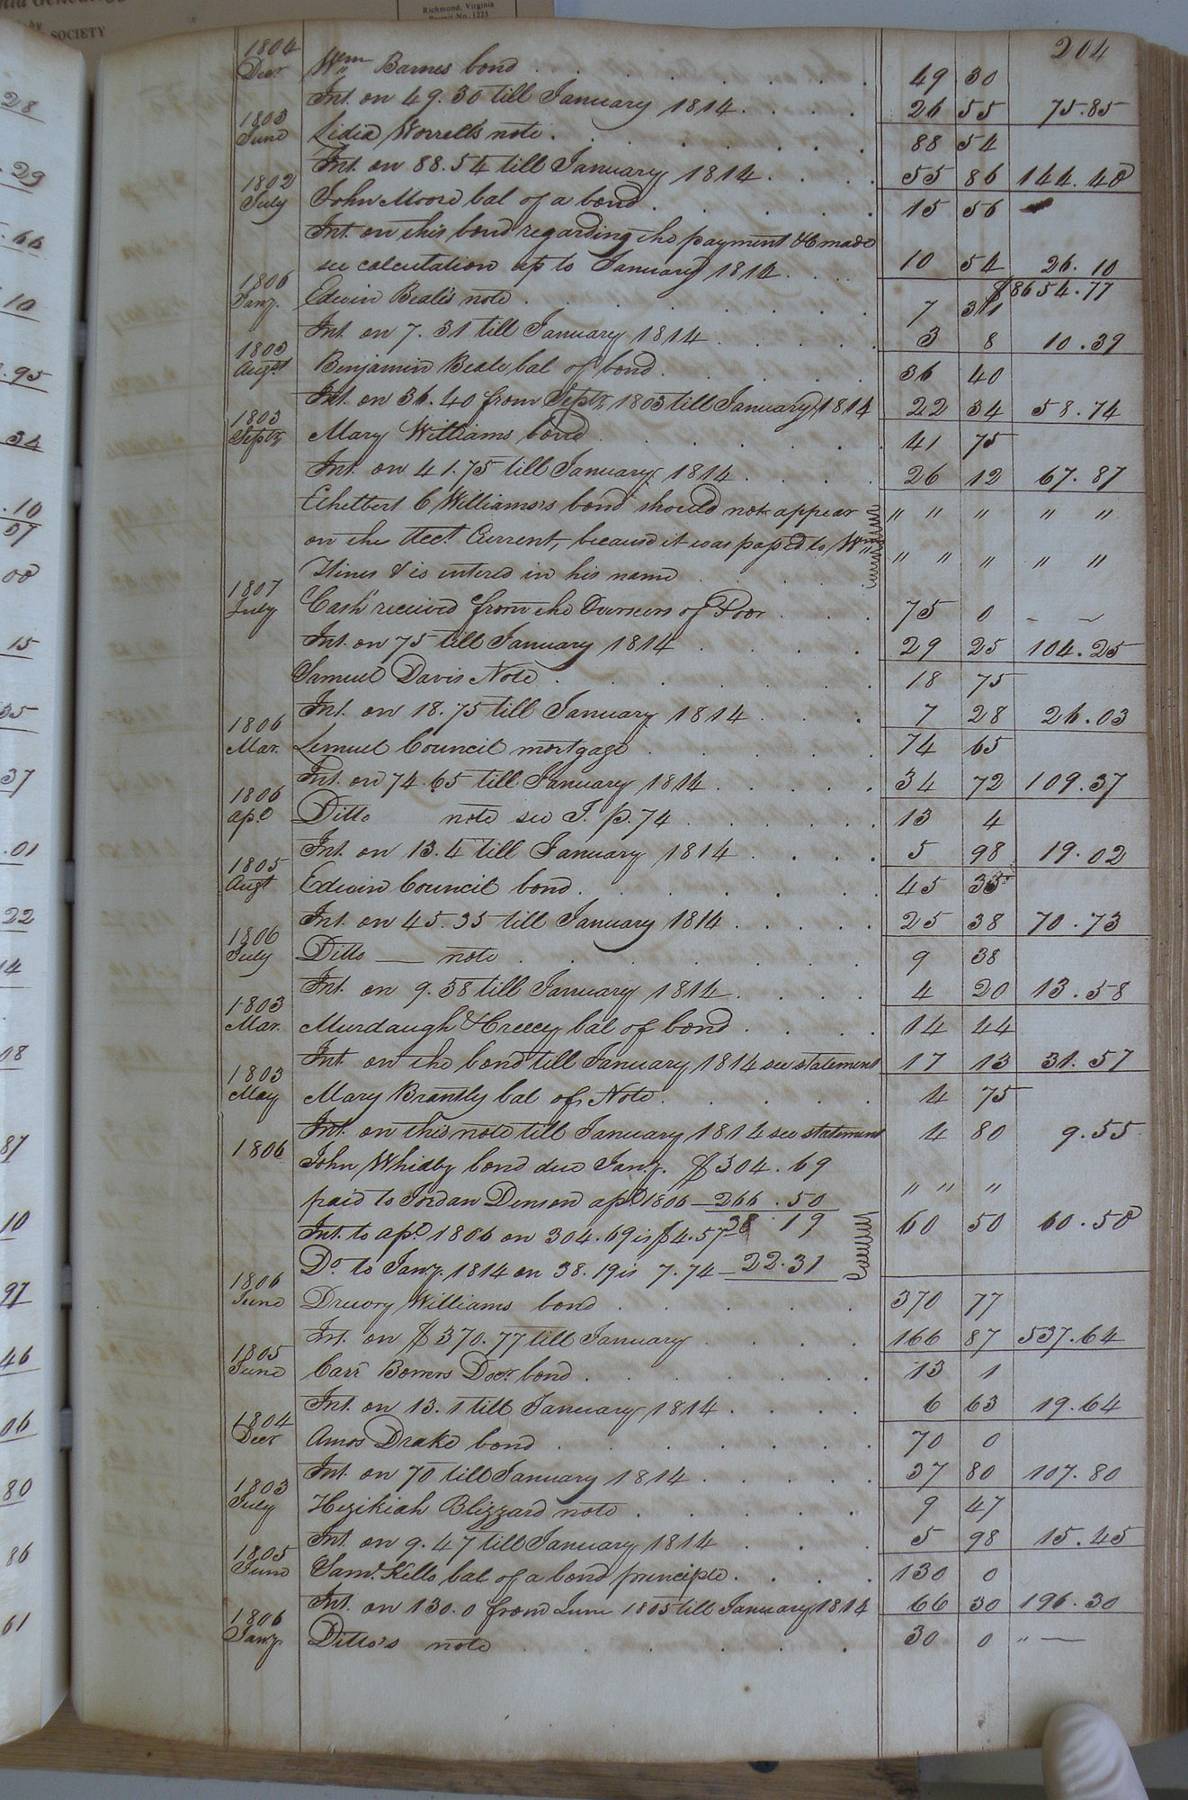 SOCIETY
Richmond, Virginia
Permit No. 1221
204
1804
Decr Wm Barnes bond 49 30
Int. on 49.30 till January 1814 26 55 75.85
1803
June Lidia Worrells note 88 54
Int. on 88.54 till January 1814 55 86 144.40
1802
July John Moore bal of a bond 15 56
Int. on this bond regarding the payment &c made
see calculation up to January 1814 10 54 26.10
$8654.77
1806
Jany. Edwin Beale's note 7 31
Int. on 7.31 till January 1814 3 8 10.39
1803
Augst Benjamin Beale bal of bond 36 40
Int. on 36.40 from Septr. 1803 till January 1814 22 34 58.74
1803
Septr Mary Williams bond 41 75
Int. on 41.75 till January 1814 26 12 67.87
Ethelbert C Williams's bond should not appear " " " " "
on the Acct Current, because it was passed to Wm " " " " "
Hines & is entered in his name
1807
July Cash received from the Overseers of Poor 75 0 – –
Int. on 75 till January 1814 29 25 104.25
Samuel Davis Note 18 75
Int. on 18.75 till January 1814 7 28 26.03
1806
Mar. Lemuel Council mortgage 74 65
Int. on 74.65 till January 1814 34 72 109.37
1806
apl Ditto note see J. p. 74 13 4
Int. on 13.4 till January 1814 5 98 19.02
1805
Augt Edwin Council bond 45 35
Int. on 45.35 till January 1814 25 38 70.73
1806
July Ditto — note 9 38
Int. on 9.38 till January 1814 4 20 13.58
1803
Mar. Murdaugh & Creecy bal of bond 14 44
Int on the bond till January 1814 see statement 17 13 31.57
1803
May Mary Brantly bal of Note 4 75
Int. on this note till January 1814 see statement 4 80 9.55
1806 John Whidby bond due Jany. $304.69
paid to Jordan Denson apl 1806 266.50 " " "
Int. to apl 1806 on 304.69 is $4.57 38 19 60 50 60.50
Do to Jany. 1814 on 38.19 is 7.74 22.31
1806
June Drewry Williams bond 370 77
Int. on $370.77 till January 166 87 537.64
1805
June Carr Bowers Decr bond 13 1
Int. on 13.1 till January 1814 6 63 19.64
1804
Decr Amos Drake bond 70 0
Int. on 70 till January 1814 37 80 107.80
1803
July Hezikiah Blizzard note 9 47
Int. on 9.47 till January 1814 5 98 15.45
1805
June Saml. Kello bal of a bond principle 130 0
Int. on 130.0 from June 1805 till January 1814 66 30 196.30
1806
Jany. Ditto's note 30 0 " —